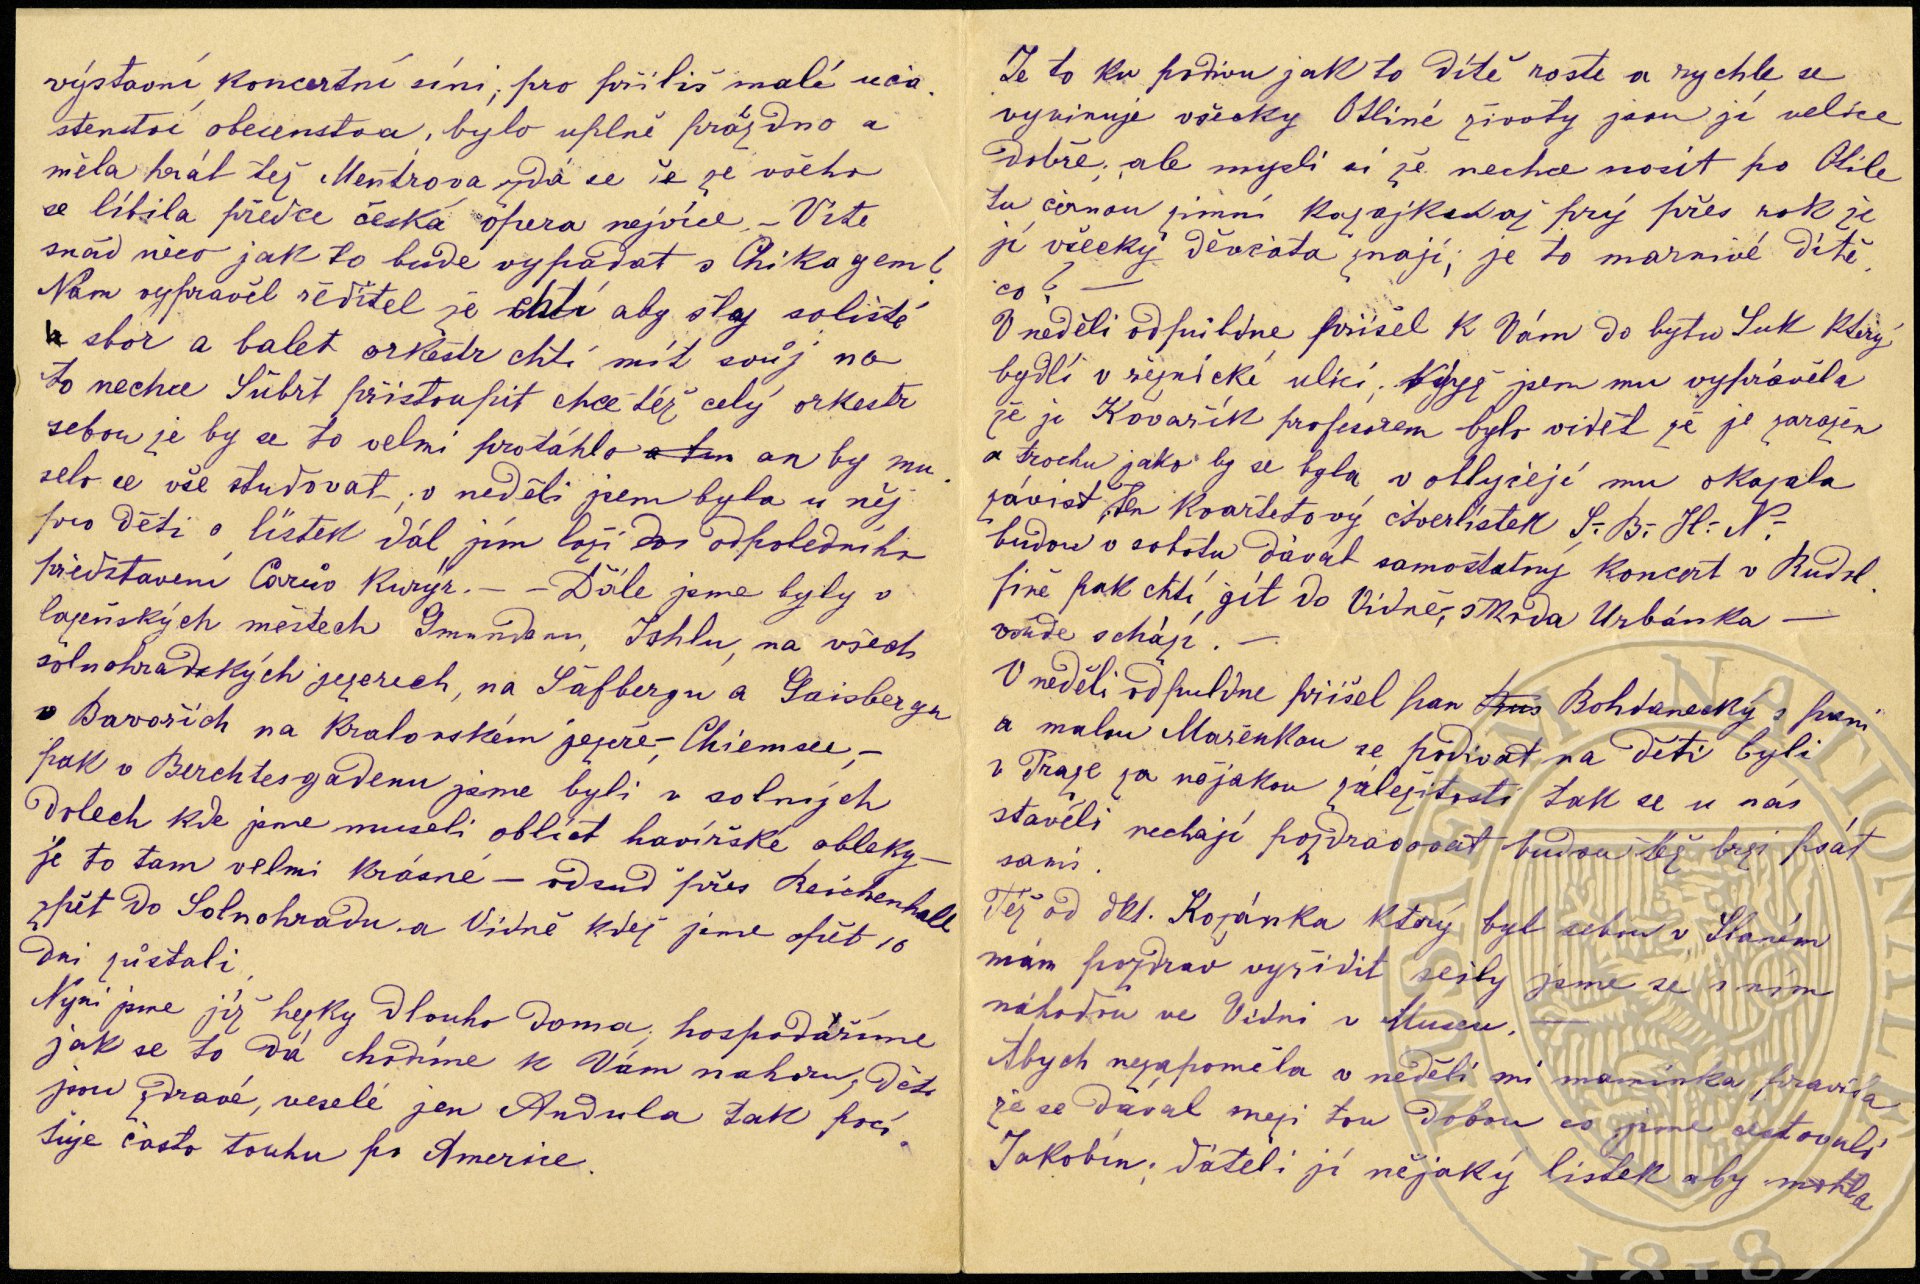 výstavní koncertní síni, pro příliš malé úča-
stenství obecenstva, bylo uplně prázdno a
měla hrát též Mentrova zdá se že ze všeho
se líbila předce česká opera nejvíce. – Víte
snád něco jak to bude vypadat s Chikagem?
Nám vypravěl ředitel že chtí aby šly solisté
sbor a balet orkestr chtí mít svůj na
to nechce Šubrt přistoupit chce též celý orkestr
sebou že by se to velmi protáhlo an by mu-
selo se vše studovat, v neděli jsem byla u něj
pro děti o lístek dál jim loži do odpoledního
představení Carův Kurýr. – – Dále jsme byly v
lázeňských městech Gmunden, Ishlu, na všech
solnohradských jezerech, na Šafbergu a Gaisbergu
v Bavořích na Kralovském jezeře, Chiemsee, –
pak v Berchtesgadenu jsme byli v solných
dolech kde jsme museli obléct havířské obleky –
je to tam velmi krásné – odsud přes Reichenhall
zpět do Solnohradu a Vídně kdež jsme opět 10
dní zůstali.
Nyní jsme již hezky dlouho doma, hospodaříme
jak se to dá chodíme k Vám nahoru, děti
jsou zdravé, veselé jen Andula tak poci-
tuje často touhu po Americe.
Je to ku podivu jak to dítě roste a rychle se
vyvinuje všecky Otliné životy jsou jí velice
dobře, ale myslí si že nechce nosit po Otile
tu černou zimní kazajku až prý přes rok že
jí všecky děvčata znají, je to marnivé dítě
co? —
V neděli odpuldne přišel k Vám do bytu Suk který
bydlí v řeznické ulici, když jsem mu vyprávěla
že je Kovařík profesorem bylo vidět že je zaražen
a trochu jako by se byla v obličeji mu okazala
závist, ten kvartetový čtverlístek S. B. H. N.
budou v sobotu dávat samostatný koncert v Rudol
fině pak chtí jít do Vídně, škoda Urbánka —
všude schází. —
V neděli odpuldne přišel pan Bohdanecký s paní
a malou Mařenkou se podívat na děti byli
v Praze za nějakou záležitostí tak se u nás
stavěli nechají pozdravovat budou též brzi psát
sami.
Též od dkt. Kozánka který byl sebou v Slaném
mám pozdrav vyřídit sešly jsme se s ním
náhodou ve Vídni v Museu. —
Abych nezapoměla v neděli mi maminka pravila
že se dával mezi tou dobou co jsme cestovali
Jakobín, dáteli jí nějaký lístek aby mohla
MUSAEUM NATIONALE
1818